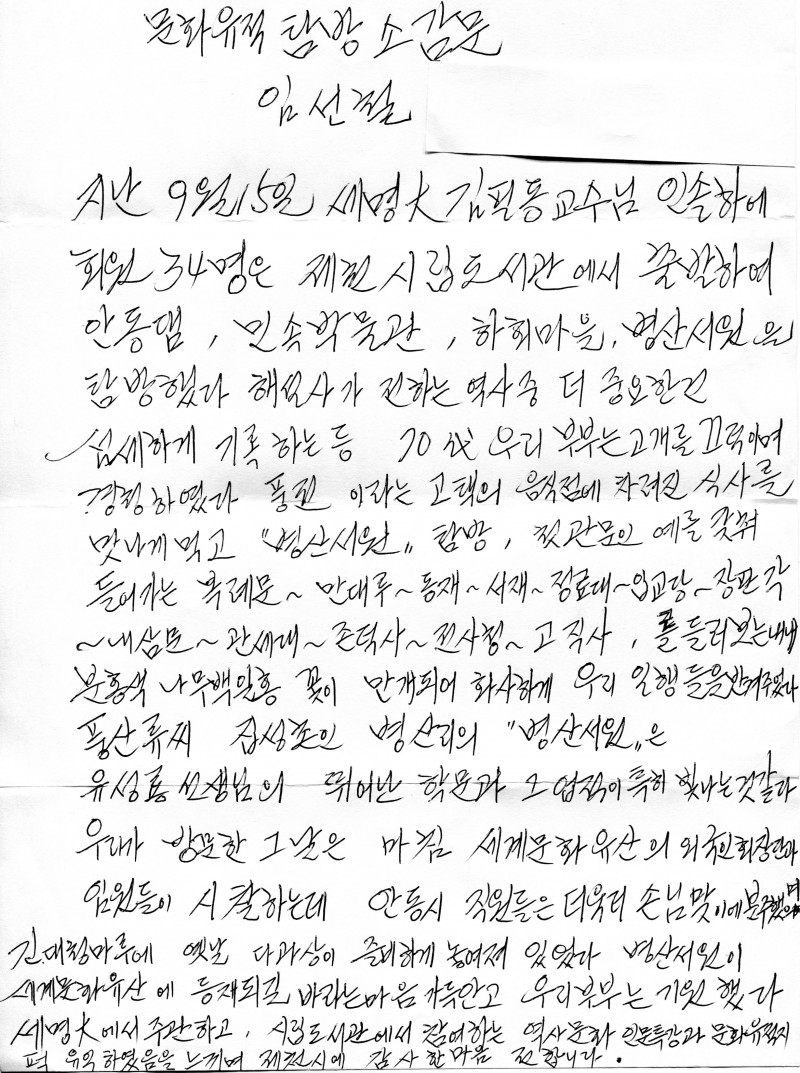 문화유적 탐방 소감문
임선철
지난 9월15일 세명大 김필동교수님 인솔하에
회원 34명은 제천 시립도서관에서 출발하여
안동댐, 민속박물관, 하회마을, 병산서원을
탐방했다 해설사가 전하는 역사중 더 중요한건
섬세하게 기록하는등 70 우리 부부는 고개를 끄덕이며
경청하였다 풍전 이라는 고택의 음식점에 차려진 식사를
맛나게 먹고 "병산서원" 탐방, 첫관문인 예를 갖춰
들어가는 복례문~만대루~동재~서재~정료대~입교당~장판각
~내삼문~관세대~존덕사~전사청~고직사, 를 들러보는내내
분홍색 나무백일홍 꽃이 만개되어 화사하게 우리 일행들을 반겨주었다
풍산류씨 집성촌인 병산리의 "병산서원"은
유성룡선생님의 뛰어난 학문과 그 업적이 특히 빛나는것같다
우리가 방문한 그날은 마침 세계문화유산의 외국인회장단과
임원들이 시찰하는데 안동시 직원들은 더욱더 손님맞이에 분주했으며
긴 대청마루에 옛날 다과상이 준비하게 놓여져 있었다 병산서원이
세계문화유산에 등재되길 바라는마음 가득안고 우리부부는 기원했다
세명大에서주관하고, 시립도서관에서 참여하는 역사문화 인문특강과 문화유적지
퍽 유익하였음을 느끼며 제천시에 감사한마음 전합니다.